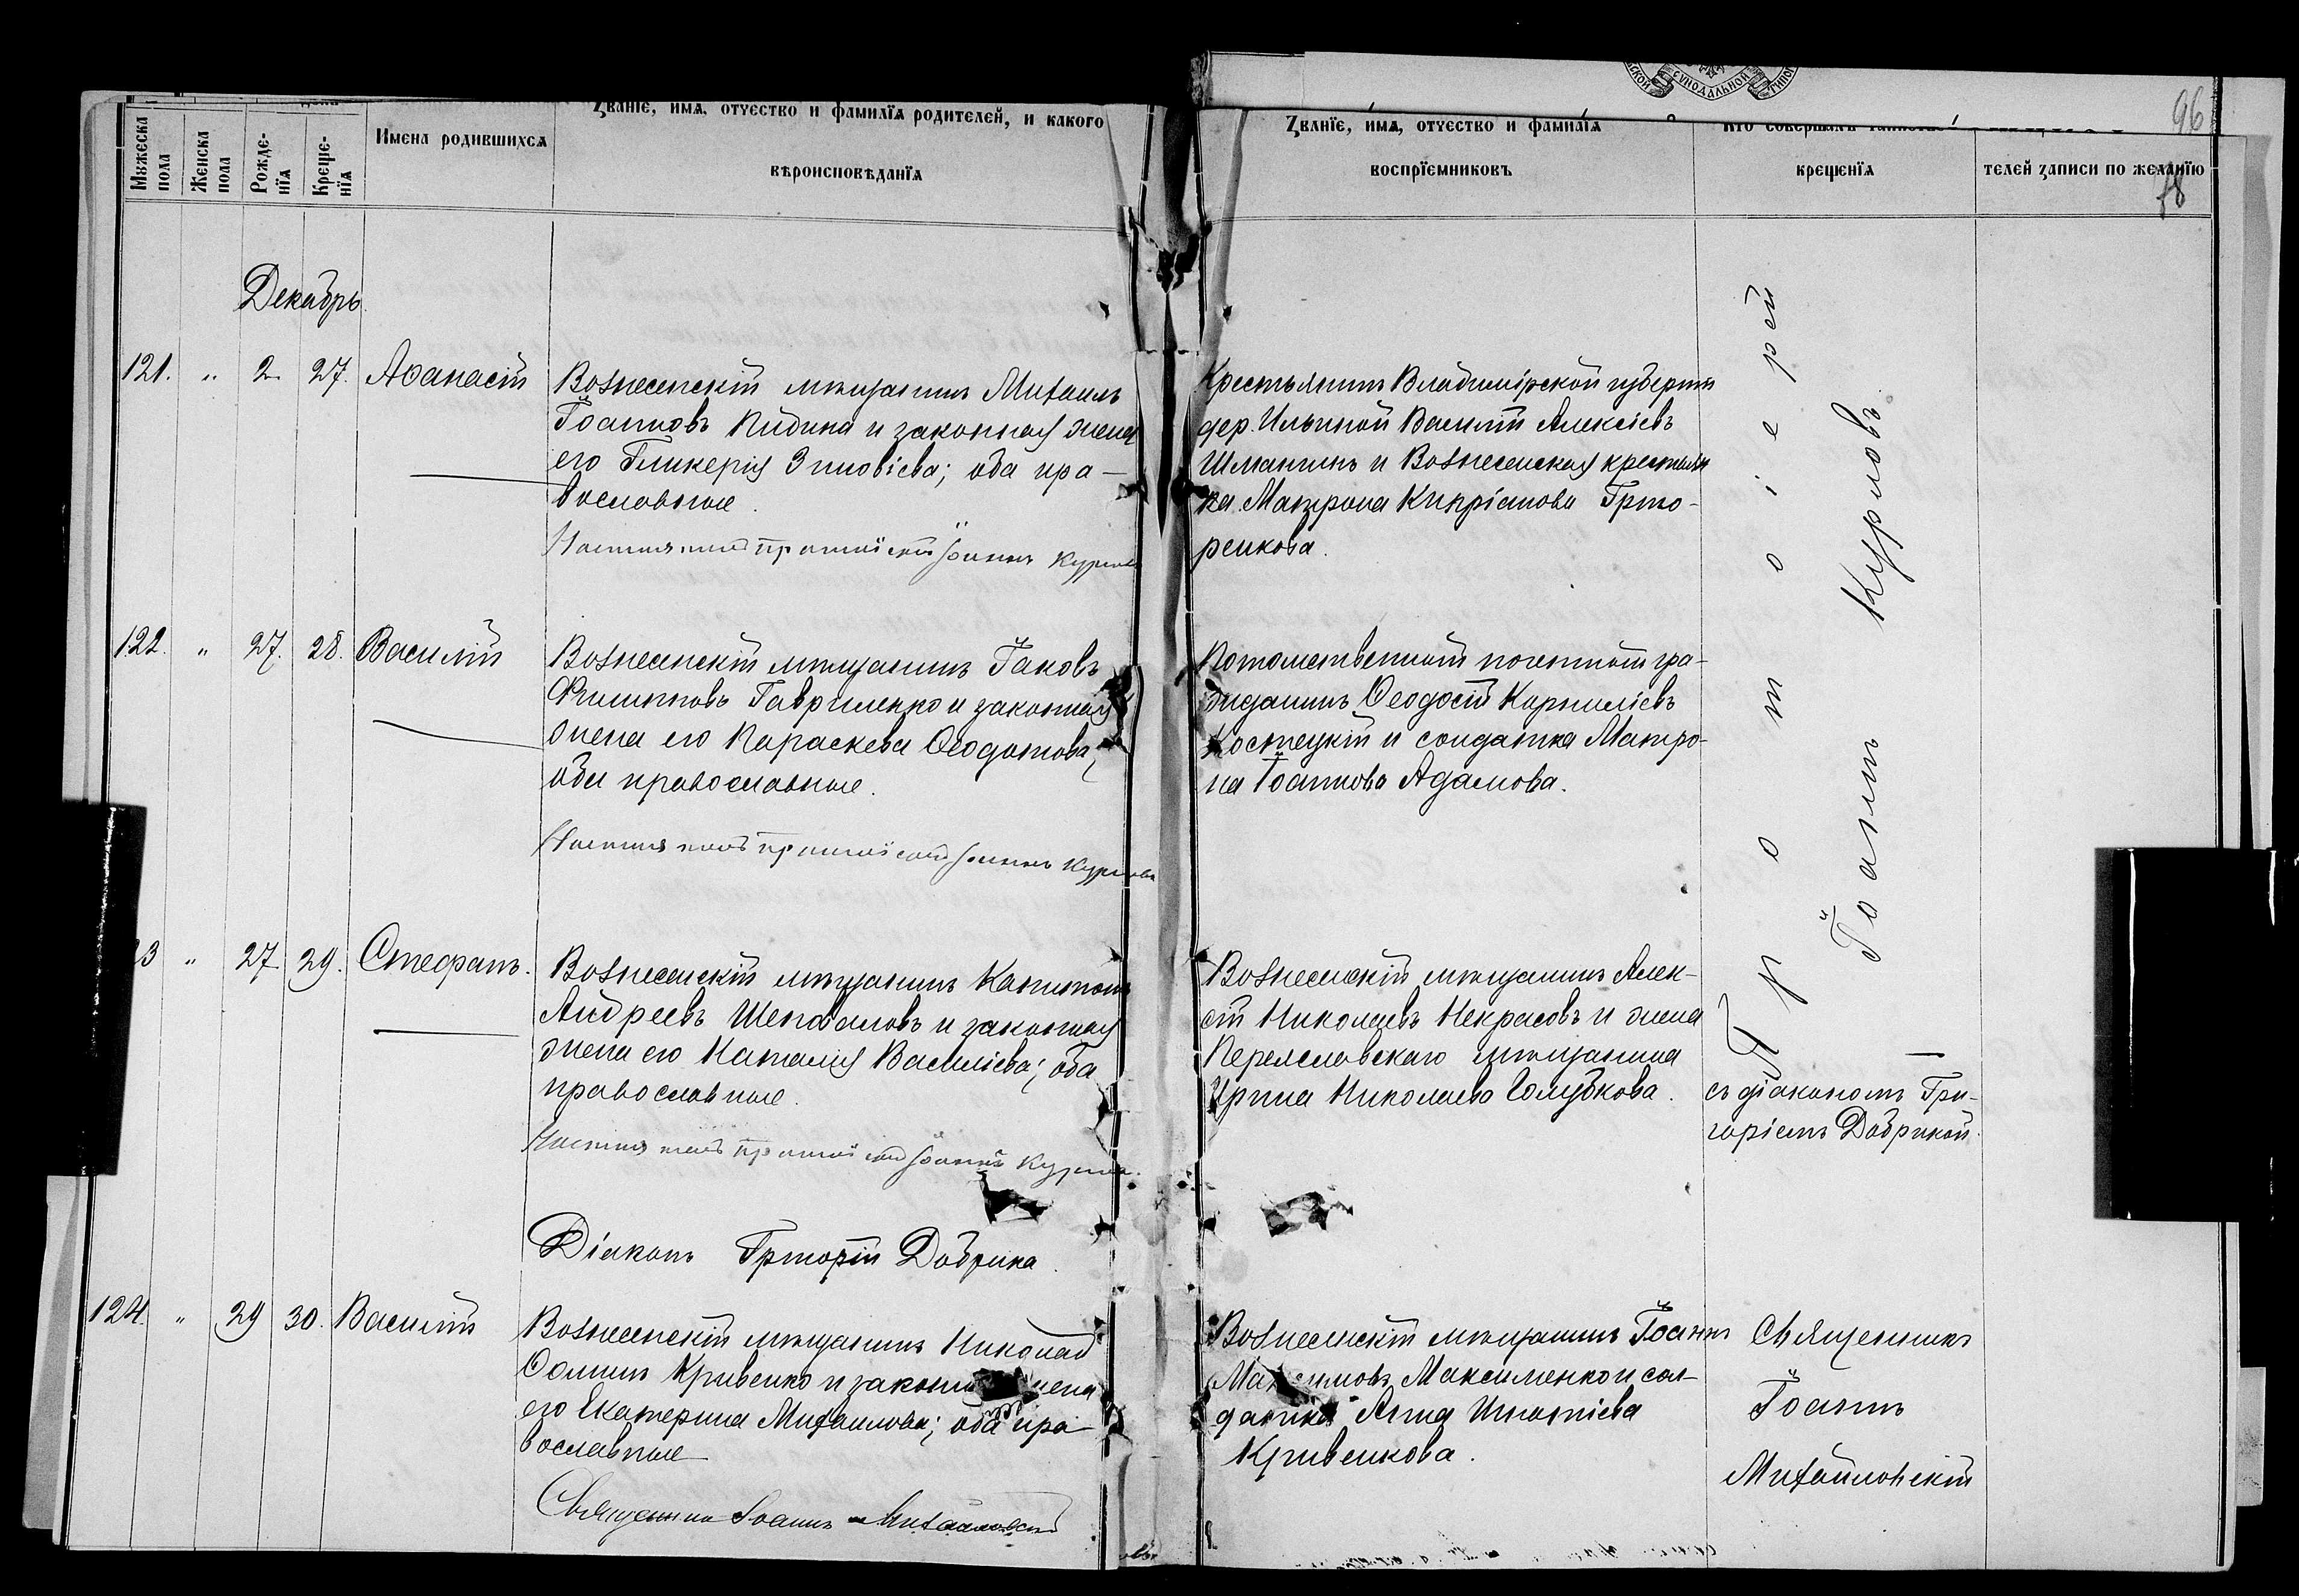 СѴНОДАЛЬНОЙ
96
78
Мꙋжеска пола
Женска пола
Рожде-
нїѧ
Креще-
нїѧ
Имена родившихсѧ
Званїе, имѧ, отчество и фамилїѧ родителей, и какого
вѣроисповѣданїѧ
Званїе, имѧ, отчество и фамилїѧ
воспрїемниковъ
Кто совершалъ таинство
крещенїѧ
телей записи по желанїю
Декабрь.
121. " 2. 27. Аѳанасій
Вознесенскій мѣщанинъ Михаилъ
Іоанновъ Пидина и законная жена
его Гликерія Зиновіева; оба пра-
вославные.
протоіерей Іоаннъ Курловъ
Крестьянинъ Владимірской губерніи
дер. Ильиной Василій Алексіевъ
Шманинъ и Вознесенская крестьян
ка Матрона Кипріанова Григо-
ренкова.
122. " 27. 28. Василій
Вознесенскій мѣщанинъ Іаковъ
Филипповъ Гавриленко и законная
жена его Параскева Ѳеодотова;
оба православные.
протоіерей Іоаннъ Курловъ
Потомственный почетный гра-
жданинъ Ѳеодосій Корниліевъ
Костецкій и солдатка Матро-
на Іоаннова Адамова.
23 " 27. 29. Стефанъ.
Вознесенскій мѣщанинъ Капитонъ
Андреевъ Шеповаловъ и законная
жена его Наталія Василіева; оба
православные.
протоіерей Іоаннъ Курловъ.
Діаконъ Григорій Добрика.
Вознесенскій мѣщанинъ Алек-
сій Николаевъ Некрасовъ и жена
Переяславскаго мѣщанина
Ирина Николаева Голубкова.
Протоіерей
Іоаннъ Курловъ
съ діакономъ Гри-
горіемъ Добрикой.
124. " 29 30. Василій
Вознесенскій мѣщанинъ Николай
Ѳоминъ Кривенко и законная жена
его Екатерина Михаилова; оба пра-
вославные
Священникъ Іоаннъ Михайловскій
Вознесенскій мѣщанинъ Іоаннъ
Максимовъ Максименко и сол-
датка Анна Игнатіева
Кривенкова.
Священникъ
Іоаннъ
Михайловскій